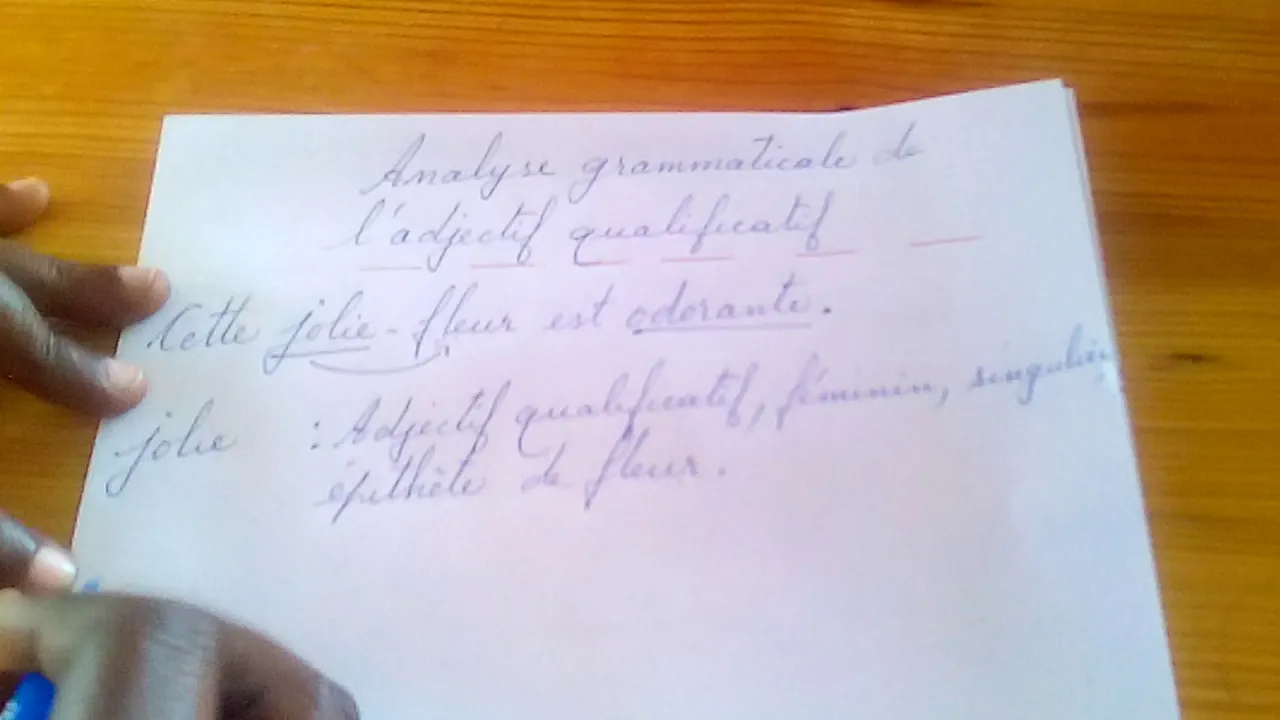 Analyse grammaticale de
l'adjectif qualificatif
Cette jolie fleur est odorante.
jolie : Adjectif qualificatif, féminin, singulier,
épithète de fleur.